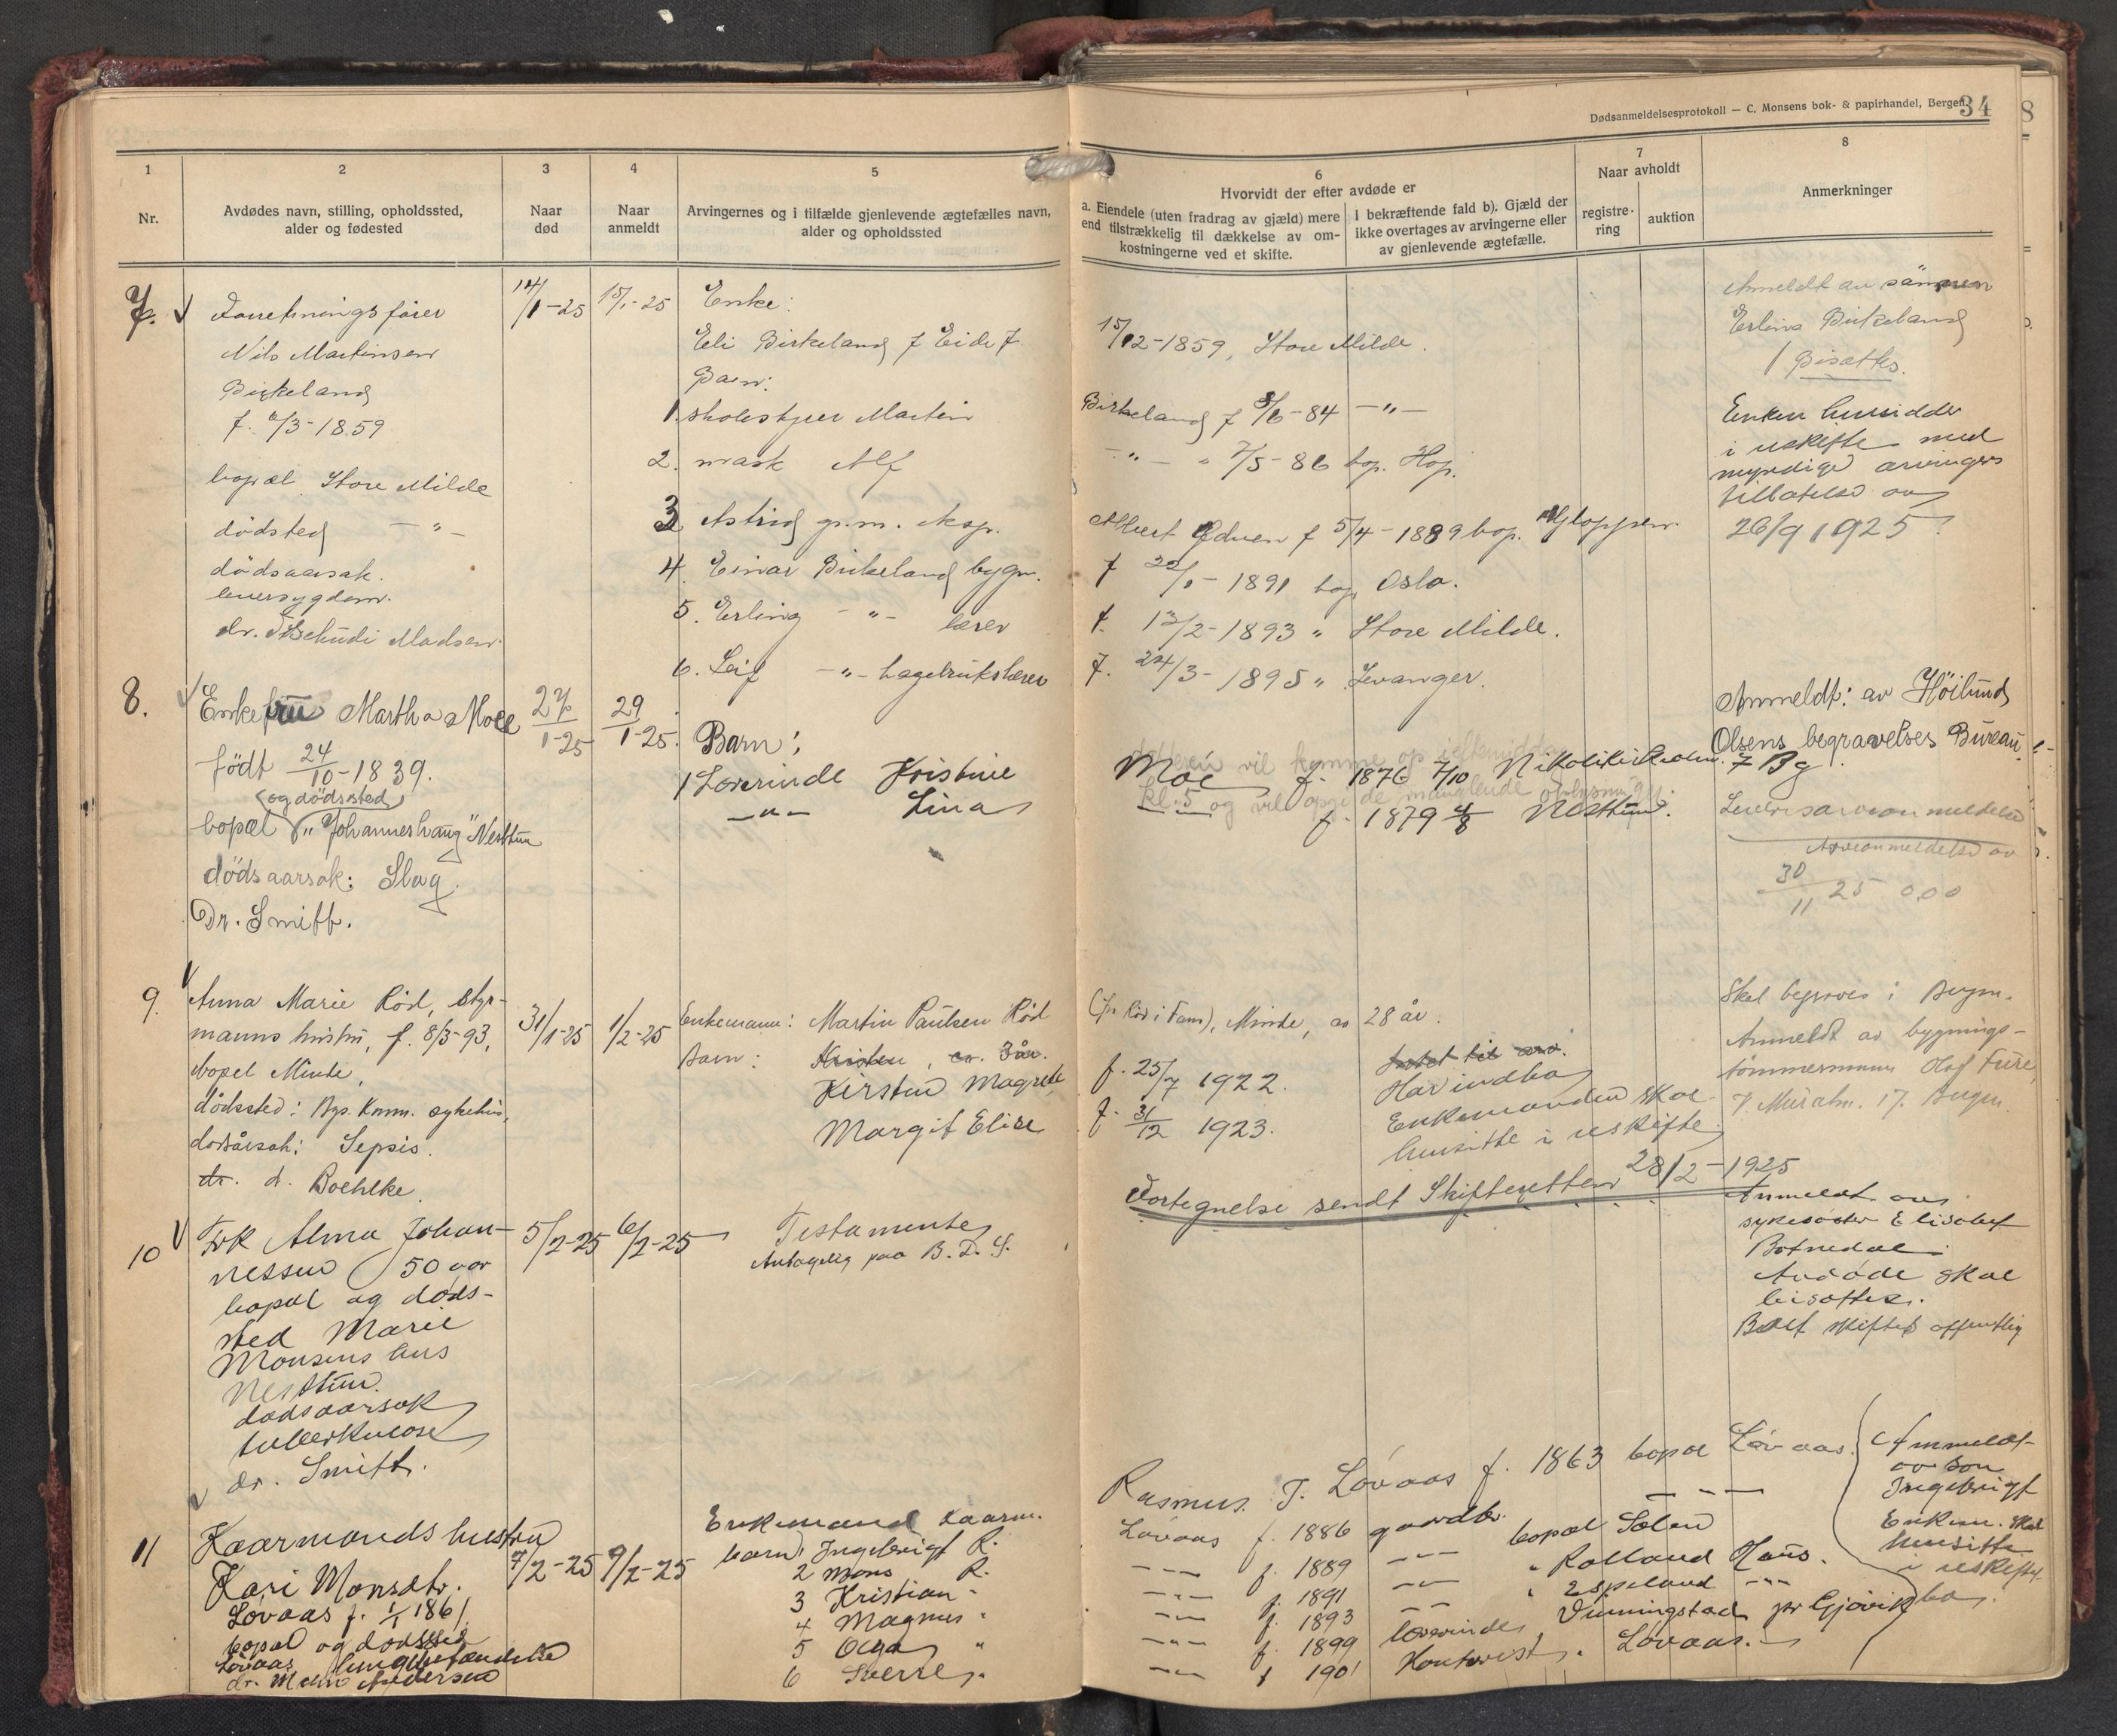 Dødsanmeldelsesprotokoll — C. Monsens bok- & papirhandel, Bergen.
34
8
1
2
3
4
5
6
7
8
Nr.
Avdødes navn, stilling, opholdssted,
alder og fødested
Naar
død
Naar
anmeldt
Arvingernes og i tilfælde gjenlevende ægtefælles navn,
alder og opholdssted
Hvorvidt der efter avdøde er
a. Eiendele (uten fradrag av gjæld) mere
end tilstrækkelig til dækkelse av om-
kostningerne ved et skifte.
I bekræftende fald b). Gjæld der
ikke overtages av arvingerne eller
av gjenlevende ægtefælle.
Naar avholdt
registre-
ring
auktion
Anmerkninger
7.
Forretningsfører
Nils Martinsen
Birkeland
f. 6/3-1859
bopæl Store Milde
dødsted - " -
dødsaarsak.
leversygdom.
dr. Tschudi Madsen.
14/1-25
15/1-25
Enke:
Eli Birkeland f Eide f.
15/12-1859, Store Milde.
Barn:
1. skolestyrer Martin
Birkeland f 8/6-84 - " -
2. mask Alf
- " - " 7/5-86 bop. Hop.
3 Astrid g.m. eksp.
Albert Edven f 5/4-1889 bop. Gloppen.
4. Einar Birkeland bygm.
f 22/1-1891 bop Oslo.
5. Erling - " - lærer
f. 12/2-1893 " Store Milde.
6. Leif - " - hagebrukslærer
f. 24/3-1895 " Levanger.
Anmeldt av sønnen
Erling Birkeland
Bisættes.
Enken hensidder
i uskifte med
myndige arvingers
tillatelse av
26/9 1925
8.
Enkefru Martha Moe
født 24/10-1839.
(og dødssted)
bopæl "Johanneshaug" Nesttun
dødsaarsak: Slag.
Dr. Smitt.
27/1-25
29/1-25.
Barn:
1 Lærerinde Kristine
- " - Lina
vil komme op i eftermiddag
kl. 5 og vil opgi de manglende oplysninger.
Moe f. 1876 7/10 Nikolikirkealm. 7 Bg
- " - f. 1879 4/8 Nesttun.
Anmeldt: av Høilund
Olsens begravelses Bureau.
Arveanmeldelse av
30/11 25 0,00
9.
Anna Marie Rød, styr-
manns hustru, f. 8/3-93,
bopel Minde,
dødssted: Bgs. Komm. sykehus,
dødsårsak: Sepsis.
dr. d. Boehlke.
31/1-25
1/2-25
Enkemann: Martin Paulsen Rød
(fra Rød i Fana), Minde, ca 28 år.
Barn: Kristen, ca. 3 år.
Kirsten Magrete,
f. 25/7 1922.
Margit Elise
f. 31/12 1923.
Har indbo
Enkemanden skal
hensitte i uskifte.
Fortegnelse sendt Skifteretten 28/2-1925
Skal begraves i Bergen.
Anmeldt av bygnings-
tømmermann Fure,
17. Bergen.
10
Frk Alma Johan-
nessen 50 aar
bopæl og døds-
sted Marie
Monsens hus
Nesttun.
dødsaarsak
tuberkulose
dr. Smitt.
5/2-25
6/2-25
Testamente
Antagelig paa B.D.S.
Anmeldt av
sykesøster Elisabet
Botnedal.
Avdøde skal
bisættes.
Boet skiftes offentlig
11
Kaarmands hustru
Kari Monsdtr.
Løvaas f. 1/1 1861
bopæl og dødssted
Løvaas lungebetændelse
dr. Andersen
7/2-25
9/2-25
Enkemand kaarm.
Rasmus J. Løvaas f. 1863 bopæl Løvaas.
barn 1 Ingebrigt R.
Løvaas f. 1886 gaardbr. - " -
2 Mons R.
- " - f. 1889 - " - bopæl Solend
3 Kristian "
- " - f. 1891 - " - " Rolland Haus.
4 Magnus "
- " - f. 1893 - " - " Espeland - " -
5 Olga "
- " - f. 1899 lærerinde Vinningstad pr Gjøvik
6 Sverre "
- " - f 1901 Kontorist. Løvaas.
Anmeldt
av søn
Ingebrigt
Enkem. skal
hensitte
i uskiftet
bo.